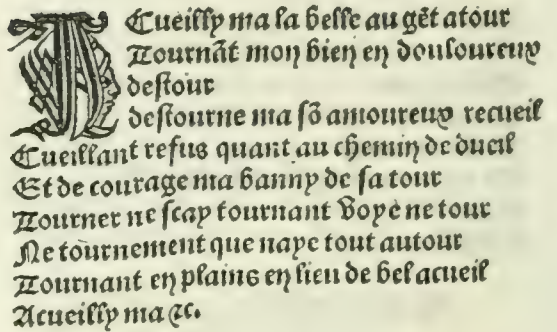 ACueilly ma la belle au gẽt atour
Tournãt mon bien en douloureux
destour
destourne ma sõ amoureux recueil
Cueillant refus quant au chemin de dueil
Et de courage ma banny de sa tour
Tourner ne scay tournant voye ne tour
Ne tournement que naye tout autour
Tournant en plains en lieu de bel acueil
Acueilly ma ⁊c.